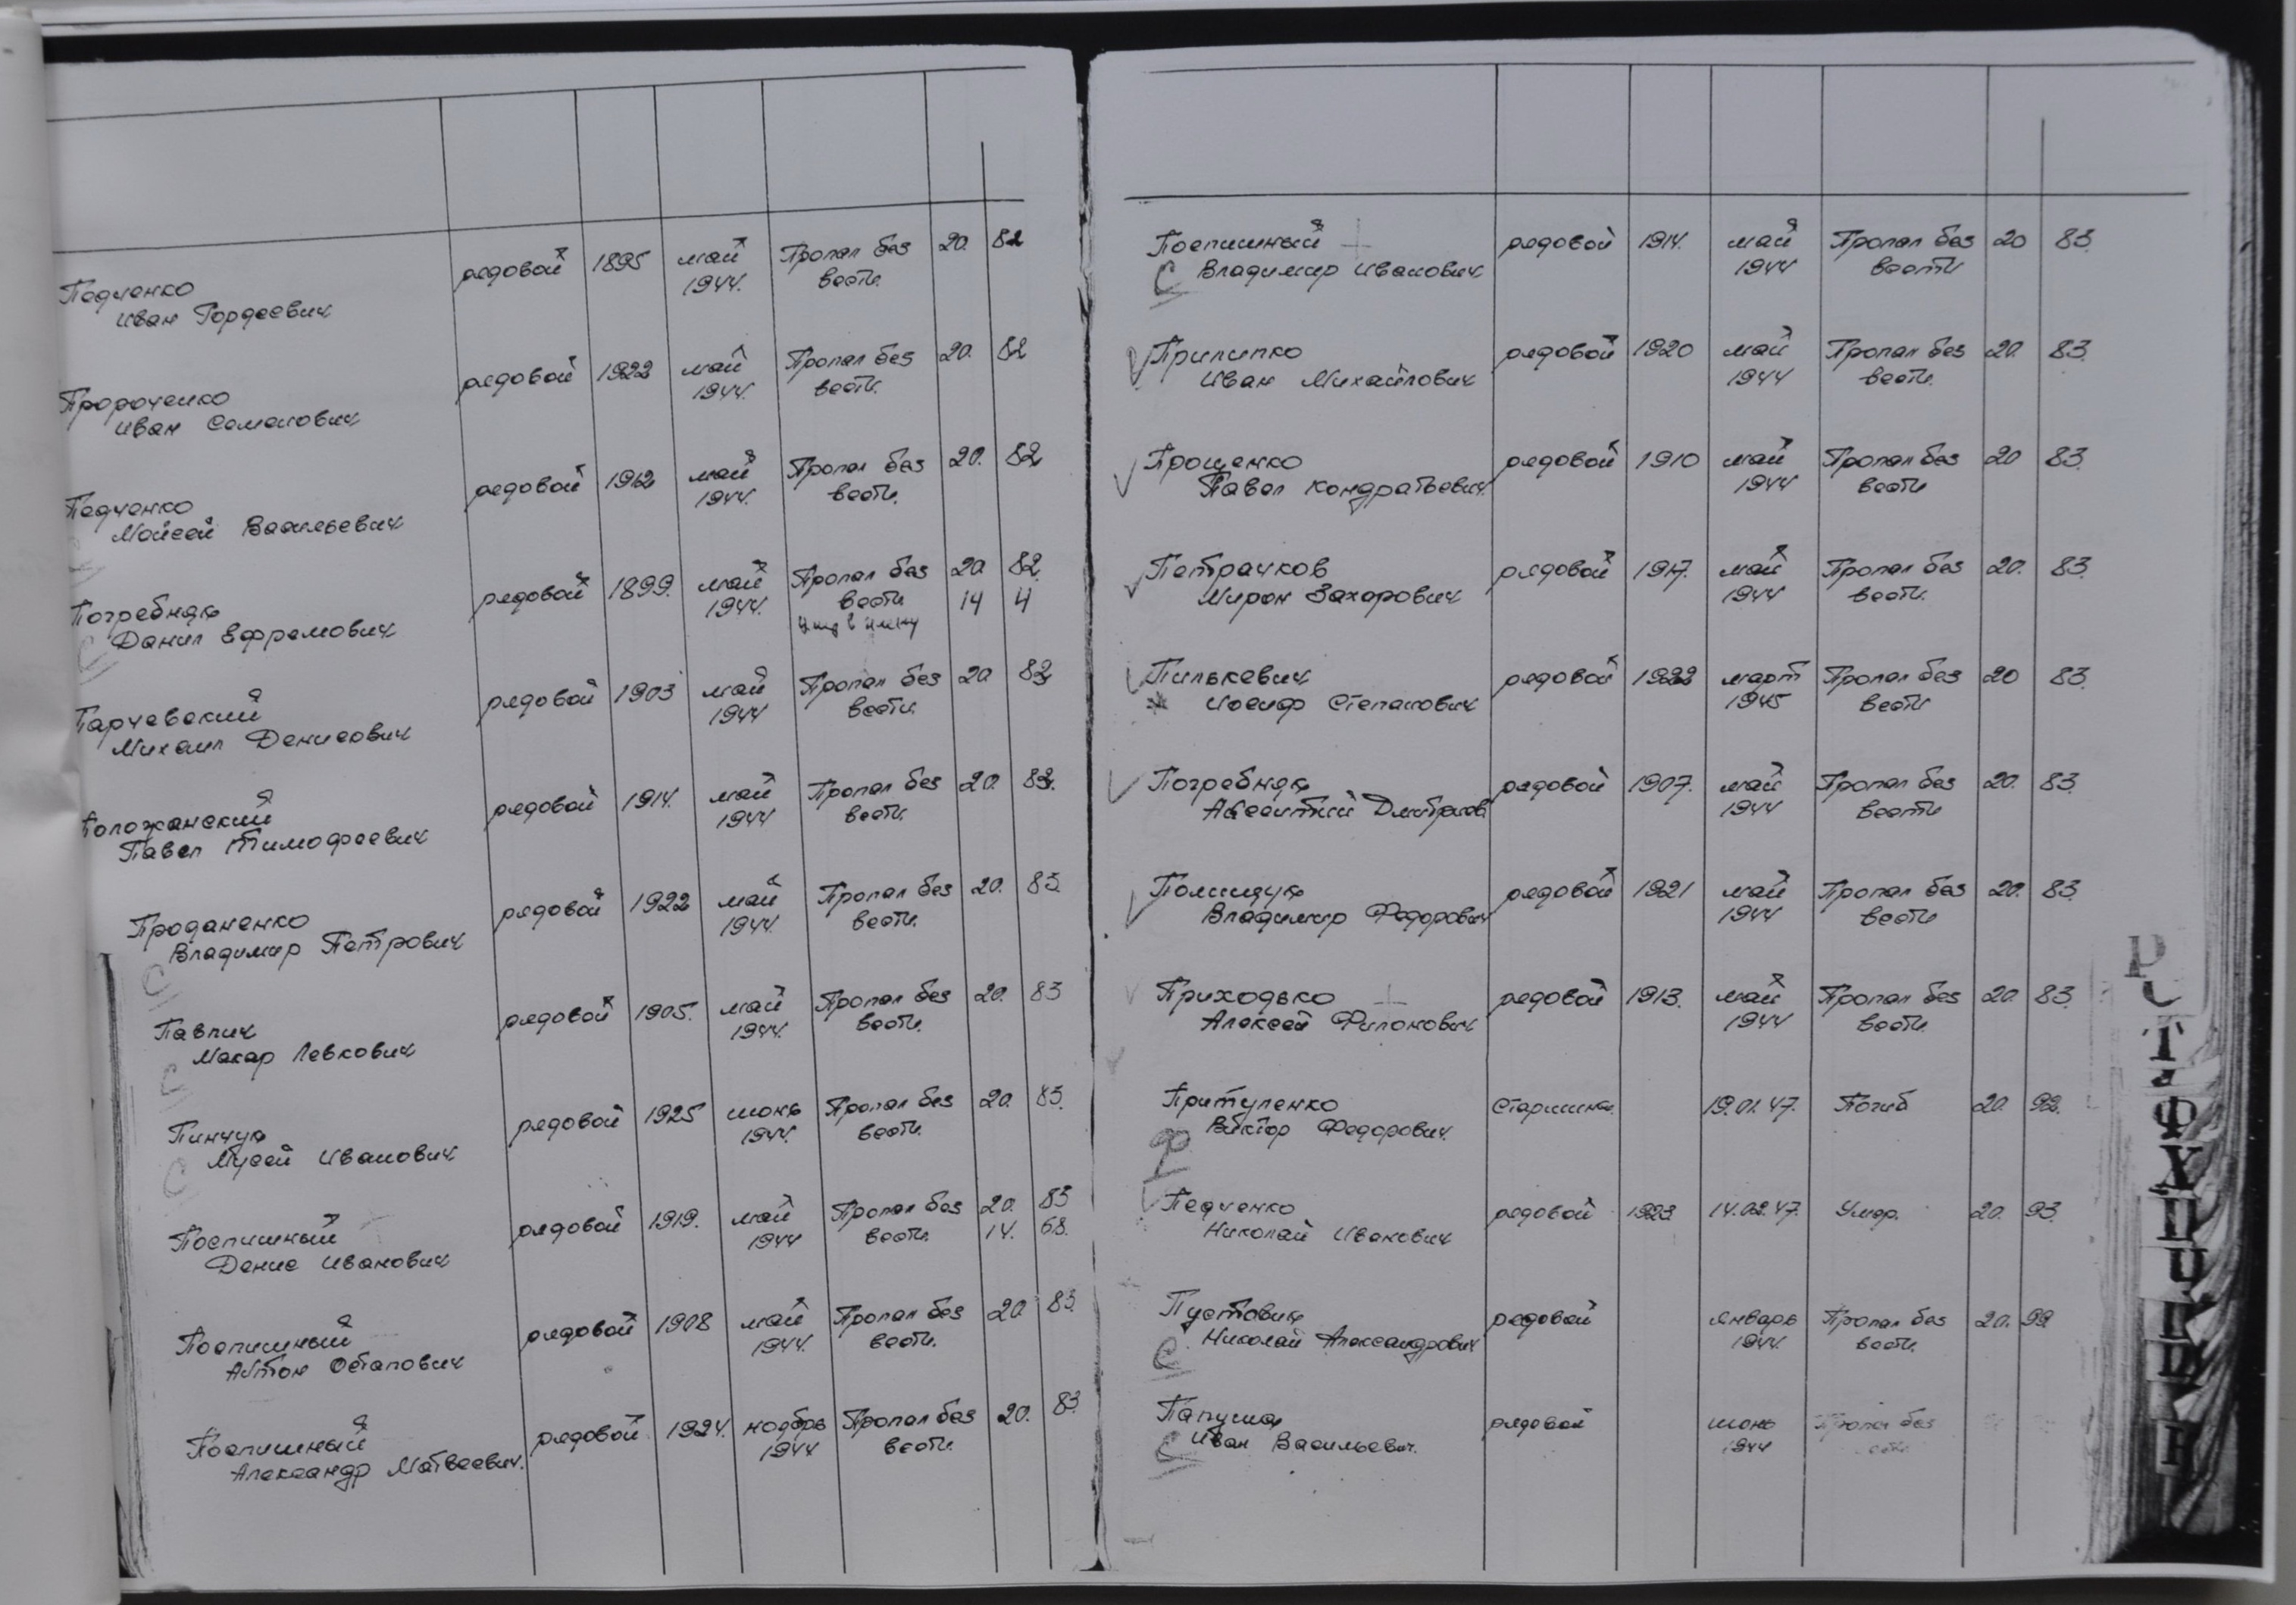 Педченко рядовой 1895 май Пропал без 20. 82
Иван Гордеевич 1944. вести.
Пророченко рядовой 1922 май Пропал без 20. 82
Иван Семенович 1944. вести.
Педченко рядовой 1912 май Пропал без 20. 82
Мойсей Васильевич 1944. вести.
Погребняк рядовой 1899. май Пропал без 20 82
Данил Ефремович 1944. вести 14 4
в плену
Парчевский рядовой 1903 май Пропал без 20 82
Михаил Денисович 1944 вести.
Положанский рядовой 1914. май Пропал без 20. 83.
Павел Тимофеевич 1944 вести.
Проданенко рядовой 1922 май Пропал без 20. 83
Владимир Петрович 1944. вести.
Павлик рядовой 1905. май Пропал без 20. 83
Макар Левкович 1944. вести.
Пинчук рядовой 1925 июнь Пропал без 20. 83.
Мусей Иванович 1944. вести.
Поепишный рядовой 1919. май Пропал без 20. 83
Денис Иванович 1944 вести. 14. 68.
Поепишный рядовой 1908 май Пропал без 20 83.
Антон Остапович 1944. вести.
Поепишный рядовой 1924. ноябрь Пропал без 20. 83.
Александр Матвеевич. 1944 вести.
Поепишный рядовой 1914. май Пропал без 20 83.
С Владимир Иванович 1944 вести
Прилипко рядовой 1920 май Пропал без 20. 83.
Иван Михайлович 1944 вести.
Прощенко рядовой 1910 май Пропал без 20 83.
Павел Кондратьевич. 1944 вести
Петрачков рядовой 1917. май Пропал без 20. 83.
Мирон Захарович 1944 вести.
Пилькевич рядовой 1922 март Пропал без 20 83.
Иосиф Степанович 1945 вести
Погребняк рядовой 1907. май Пропал без 20. 83.
1944 вести
Полищук рядовой 1921 май Пропал без 20. 83.
Владимир Федорович 1944 вести
Приходько рядовой 1913. май Пропал без 20. 83.
Алексей Филонович 1944 вести.
Притуленко Старшина. 19.01.47. Погиб 20. 92.
Виктор Федорович.
Педченко рядовой 1923 14.02.47. Умер. 20. 93.
Николай Иванович
Пустовик рядовой январь Пропал без 20. 99.
С Николай Александрович 1944. вести.
Папуша рядовой июнь Пропал без
С Иван Васильевич. 1944 вести
Р
С
Т
Ф
Х